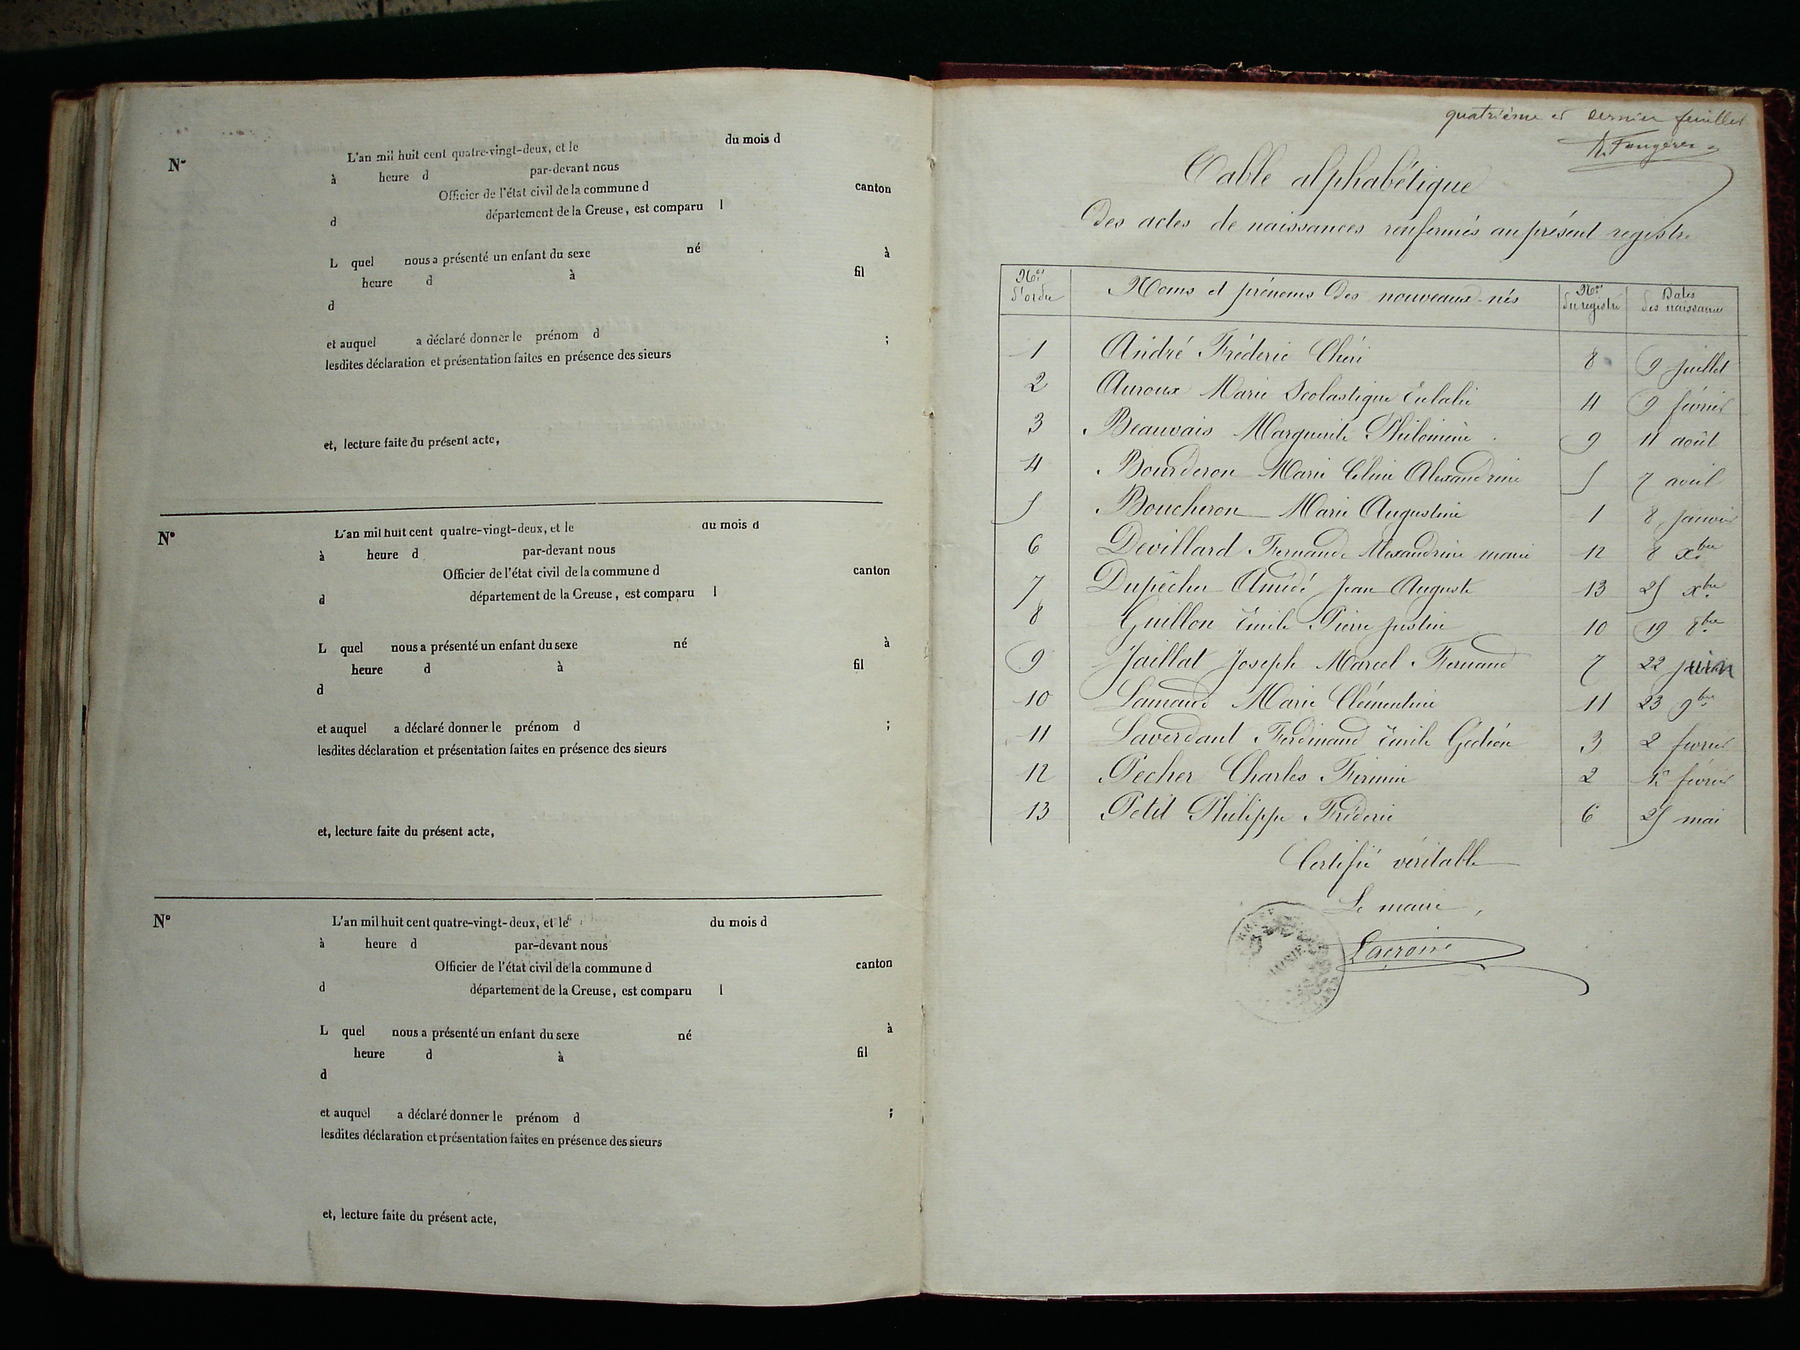 N°
L'an mil huit cent quatre-vingt-deux, et le du mois d
à heure d par-devant nous
Officier de l'état civil de la commune d canton
d département de la Creuse, est comparu l
L quel nous a présenté un enfant du sexe né à
heure d à fil
d
et auquel a déclaré donner le prénom d ;
lesdites déclaration et présentation faites en présence des sieurs
et, lecture faite du présent acte,
N°
L'an mil huit cent quatre-vingt-deux, et le du mois d
à heure d par-devant nous
Officier de l'état civil de la commune d canton
d département de la Creuse, est comparu l
L quel nous a présenté un enfant du sexe né à
heure d à fil
d
et auquel a déclaré donner le prénom d ;
lesdites déclaration et présentation faites en présence des sieurs
et, lecture faite du présent acte,
N°
L'an mil huit cent quatre-vingt-deux, et le du mois d
à heure d par-devant nous
Officier de l'état civil de la commune d canton
d département de la Creuse, est comparu l
L quel nous a présenté un enfant du sexe né à
heure d à fil
d
et auquel a déclaré donner le prénom d ;
lesdites déclaration et présentation faites en présence des sieurs
et, lecture faite du présent acte,
quatrième et dernier feuillet
Fougères
Table alphabétique
des actes de naissances renfermés au présent registre
Nos d'ordre Noms et prénoms des nouveaux-nés Nos du registre Dates des naissances
1 André Fréderic Chéri 8 9 juillet
2 Auroux Marie Scolastique Eulalie 4 9 février
3 Beauvais Marguerite Philomène 9 11 août
4 Bourderon Marie Céline Alexandrine 5 7 avril
5 Boucheron Marie Augustine 1 8 janvier
6 Devillard Fernande Alexandrine marie 12 8 xbre
7 Dupêcher Amédé Jean Auguste 13 25 xbre
8 Guillon Emile Pierre Justin 10 19 8bre
9 Jaillat Joseph Marcel Fernand 7 22 juin
10 Lamaud Marie Clémentine 11 23 9bre
11 Laverdant Ferdinand Emile Gédéon 3 2 février
12 Pecher Charles Firmin 2 février
13 Petit Philippe Fréderic 6 25 mai
Certifié véritable
Le maire,
Lacroix
MAIRIE